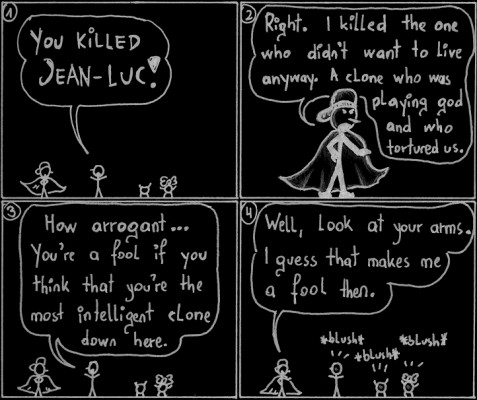 1
You killed
Jean-Luc!
2
Right. I killed the one
who didn't want to live
anyway. A clone who was
playing god
and who
tortured us.
3
How arrogant...
You're a fool if you
think that you're the
most intelligent clone
down here.
4
Well, look at your arms.
I guess that makes me
a fool then.
*blush*
*blush*
*blush*